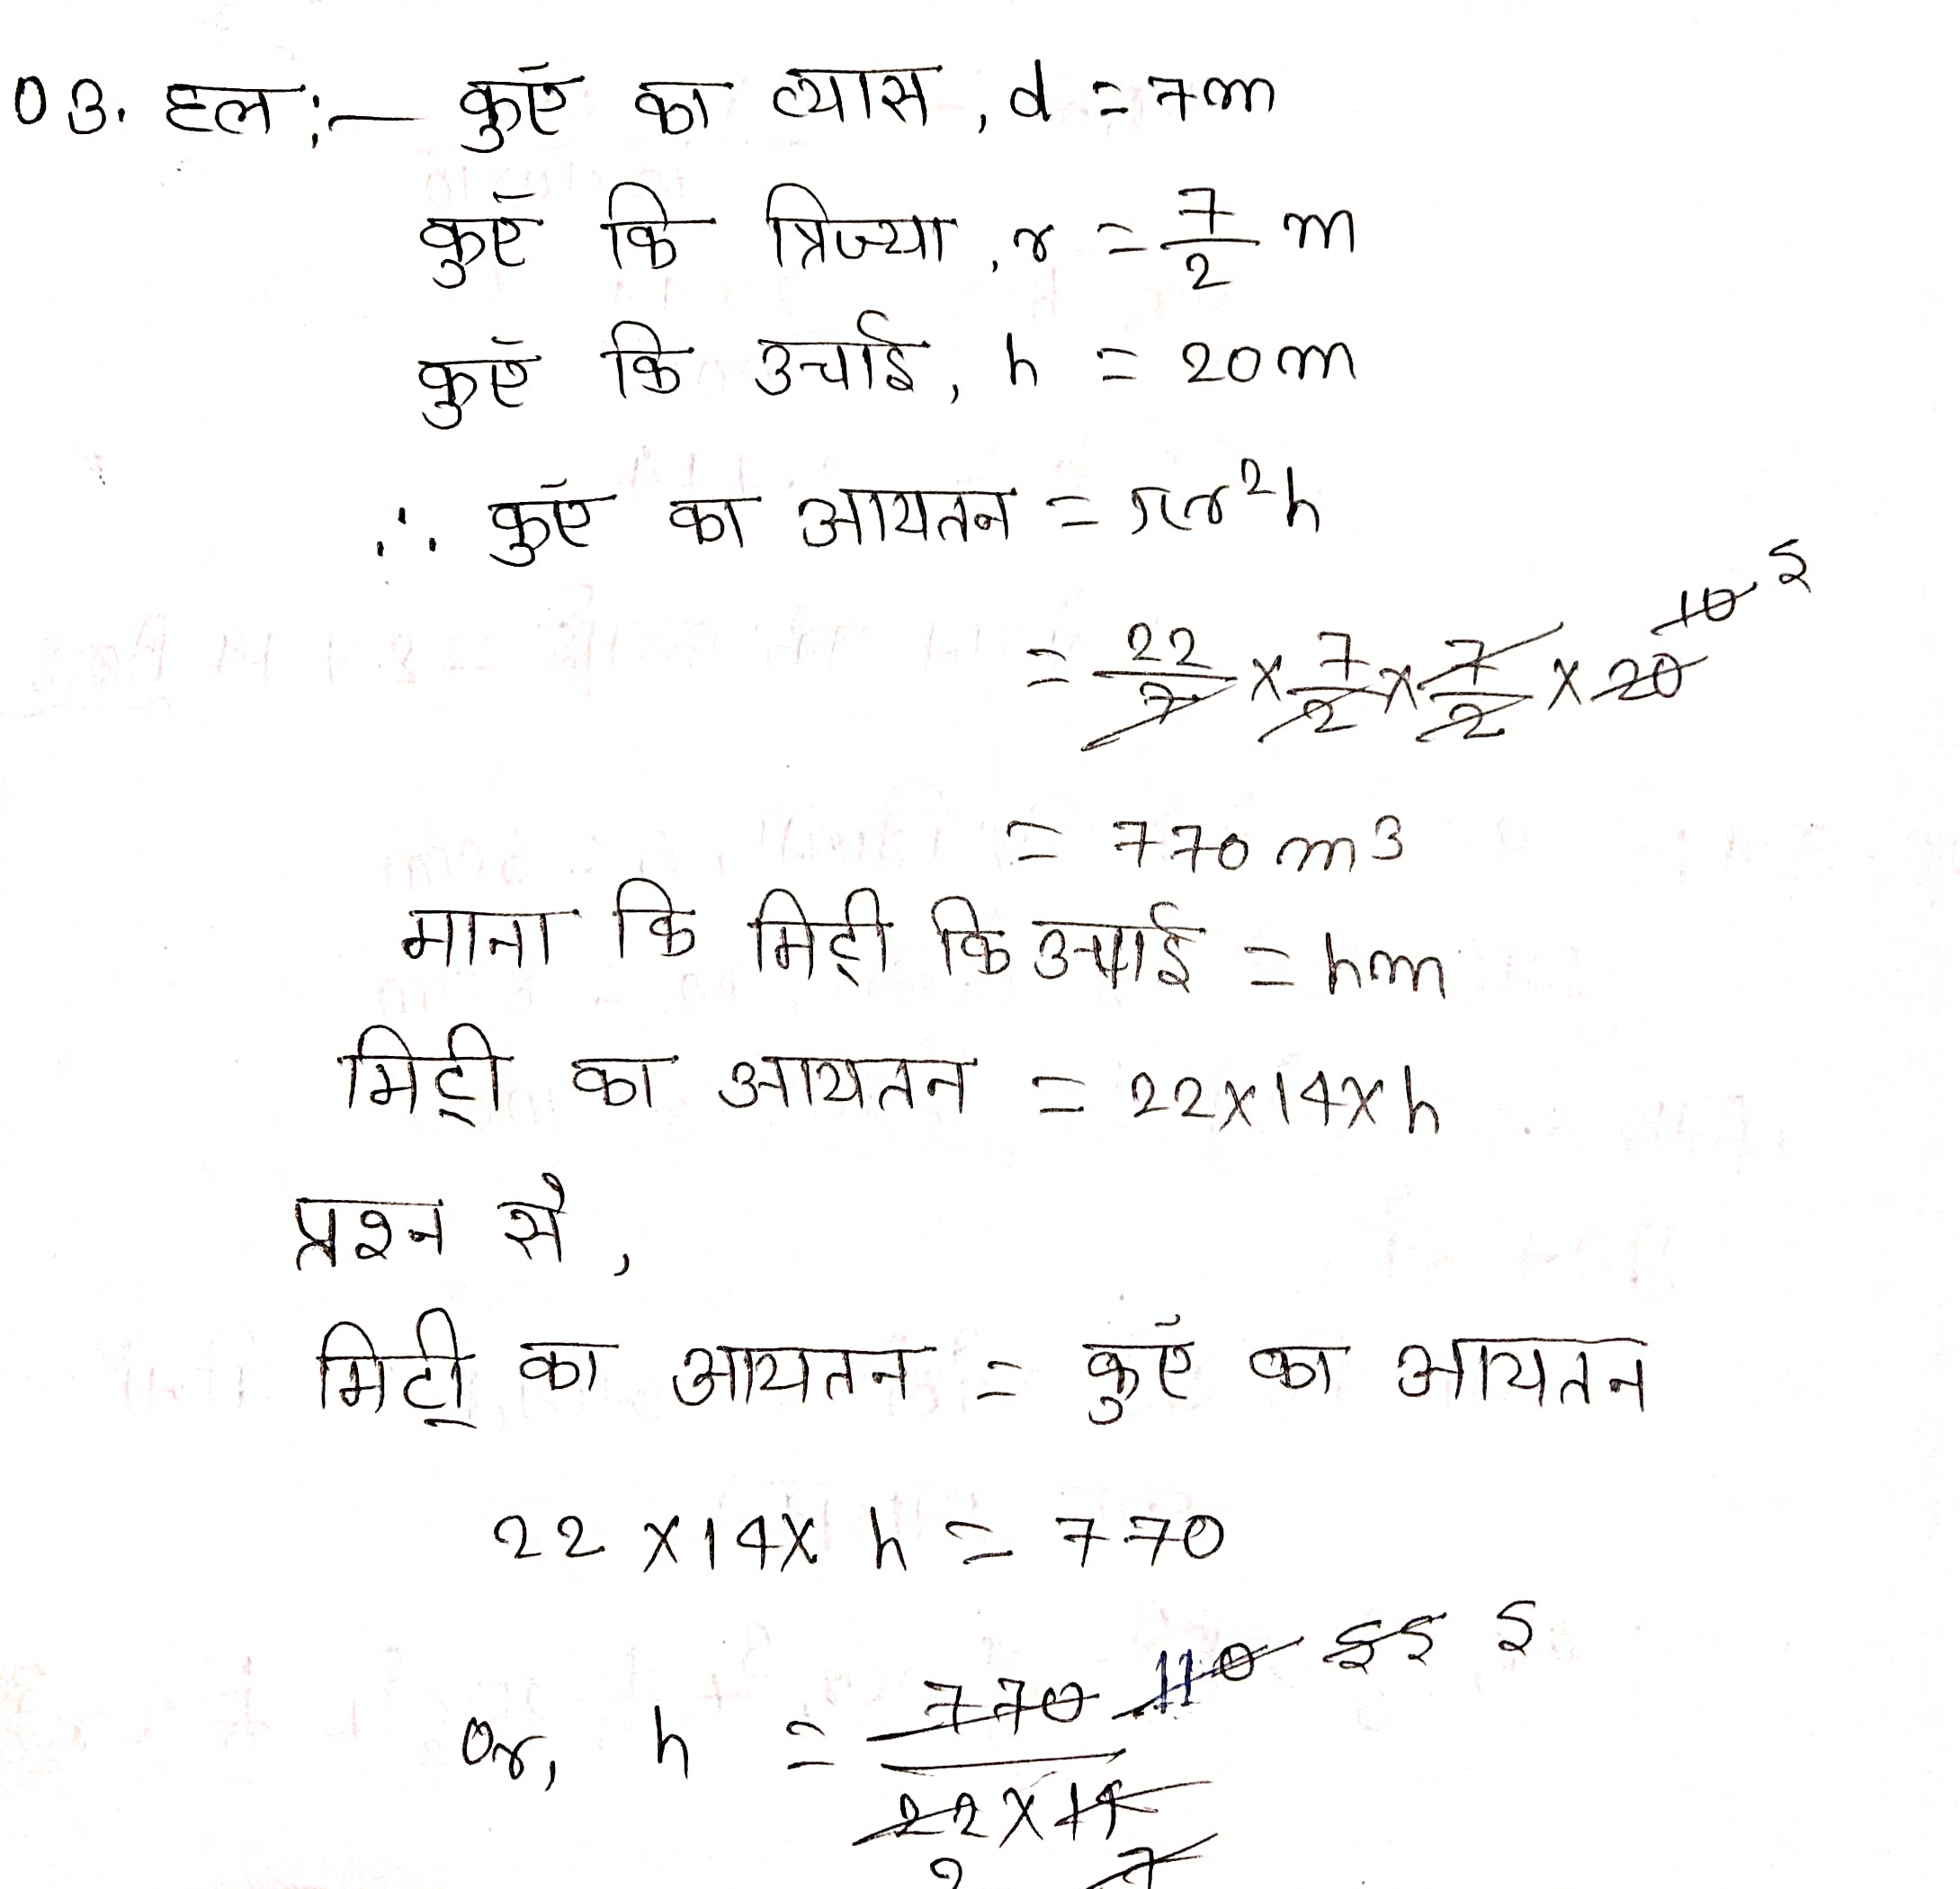 03. हल :- कुएँ का व्यास, d = 7m
कुएँ कि त्रिज्या, r = 7/2 m
कुएँ कि उचाई, h = 20m
∴ कुएँ का आयतन = πr²h
= 22/7 × 7/2 × 7/2 × 20 10 5
= 770 m3
माना कि मिट्टी कि उचाई = hm
मिट्टी का आयतन = 22×14×h
प्रश्न से,
मिट्टी का आयतन = कुएँ का आयतन
22 × 14 × h = 770
Or, h = 770 110 55 5
22 × 14
2 7